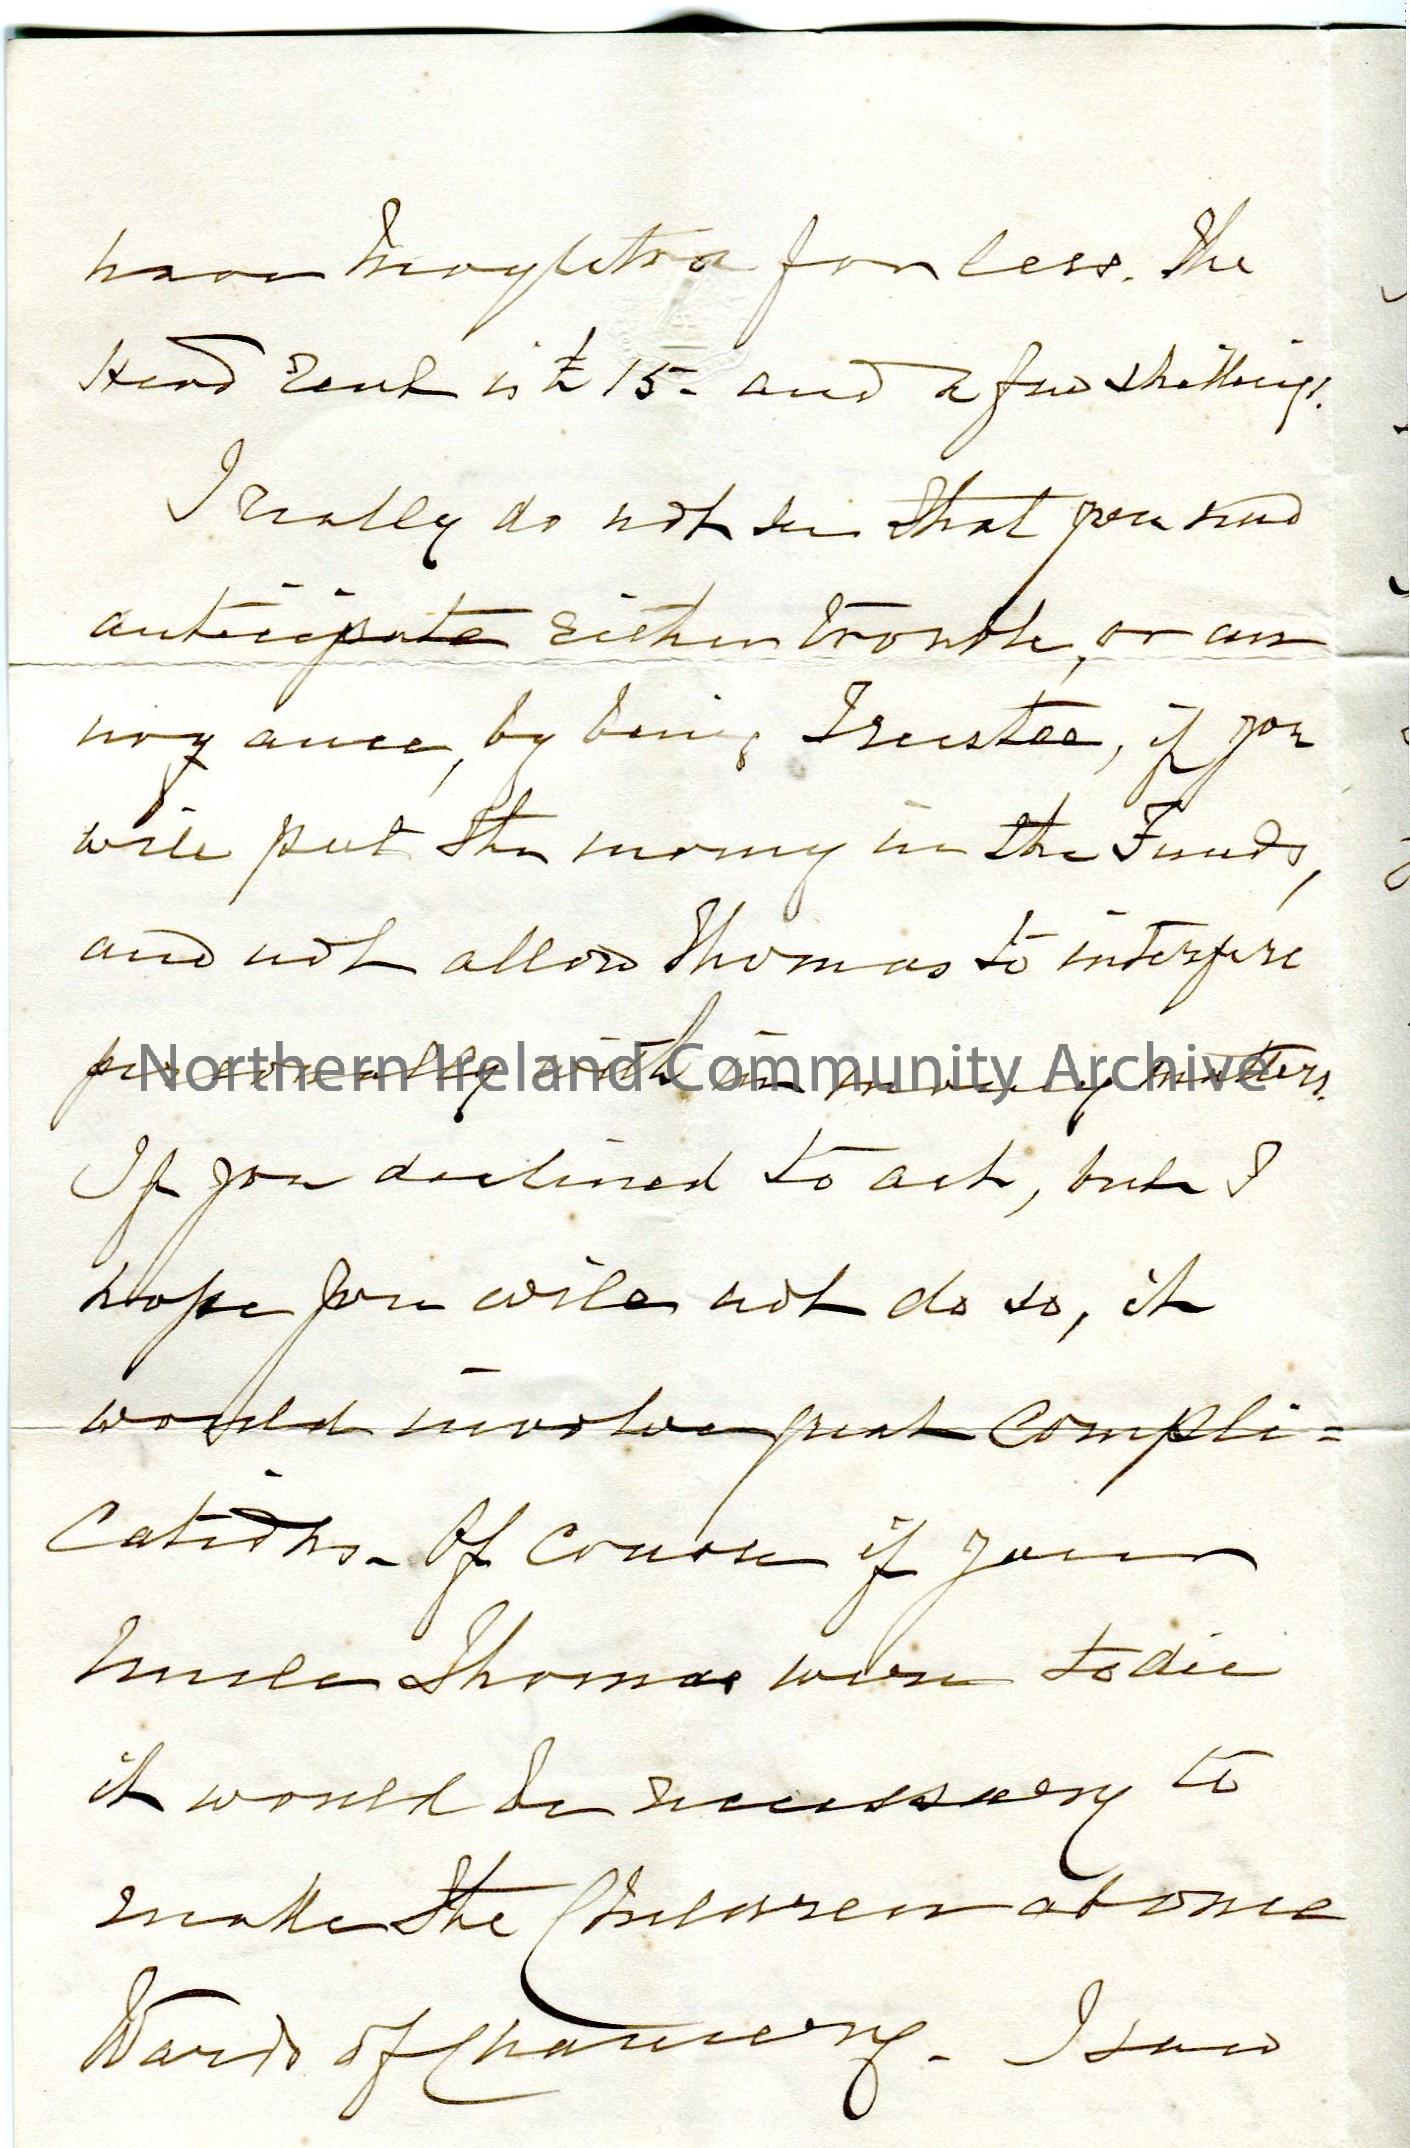 have brought it for less. The
Head Rent is £15- and a few shillings.
I really do not see that you need
anticipate either trouble, or an
noyance, by being Trustee, if you
will put the money in the Funds,
and not allow Thomas to interfere
personally with in money matters.
Northern Ireland Community Archive
If you declined to act, but I
hope you will not do so, it
would involve great compli=
cations - Of course if your
Uncle Thomas were to die
it would be necessary to
make the Children at once
Wards of Chancery - I saw